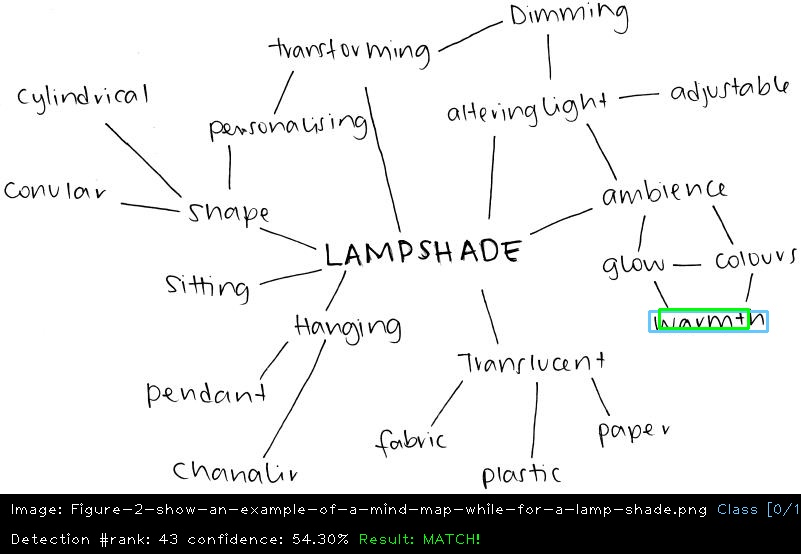 Dimming
transforming
cylindrical
adjustable
altering light
personalising
conular
shape
ambience
LAMPSHADE
glow
colours
sitting
warmth
Hanging
Translucent
pendant
fabric
paper
chanalir
plastic
Image: Figure-2-show-an-example-of-a-mind-map-while-for-a-lamp-shade.png Class [0/1
Detection #rank: 43 confidence: 54.30% Result: MATCH!